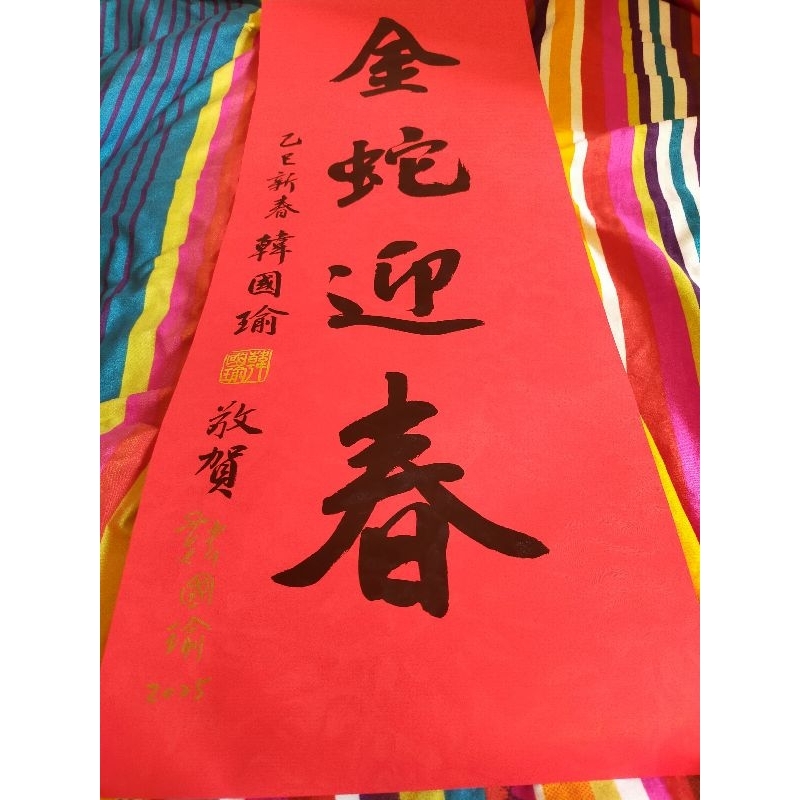 金蛇迎春
乙巳新春 韓國瑜 敬賀
韓國瑜
2025